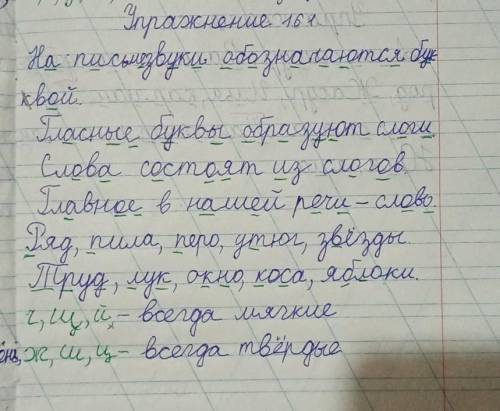 Упражнение 161
На письмезвуки обозначаются бук
квой.
Гласные буквы образуют слоги.
Слова состоят из слогов.
Главное в нашей речи – слово.
Ряд, пила, перо, утюг, звёзды.
Труд, лук, окно, коса, яблоки.
ч, щ, й, – всегда мягкие
ж, ш, ц – всегда твёрдые